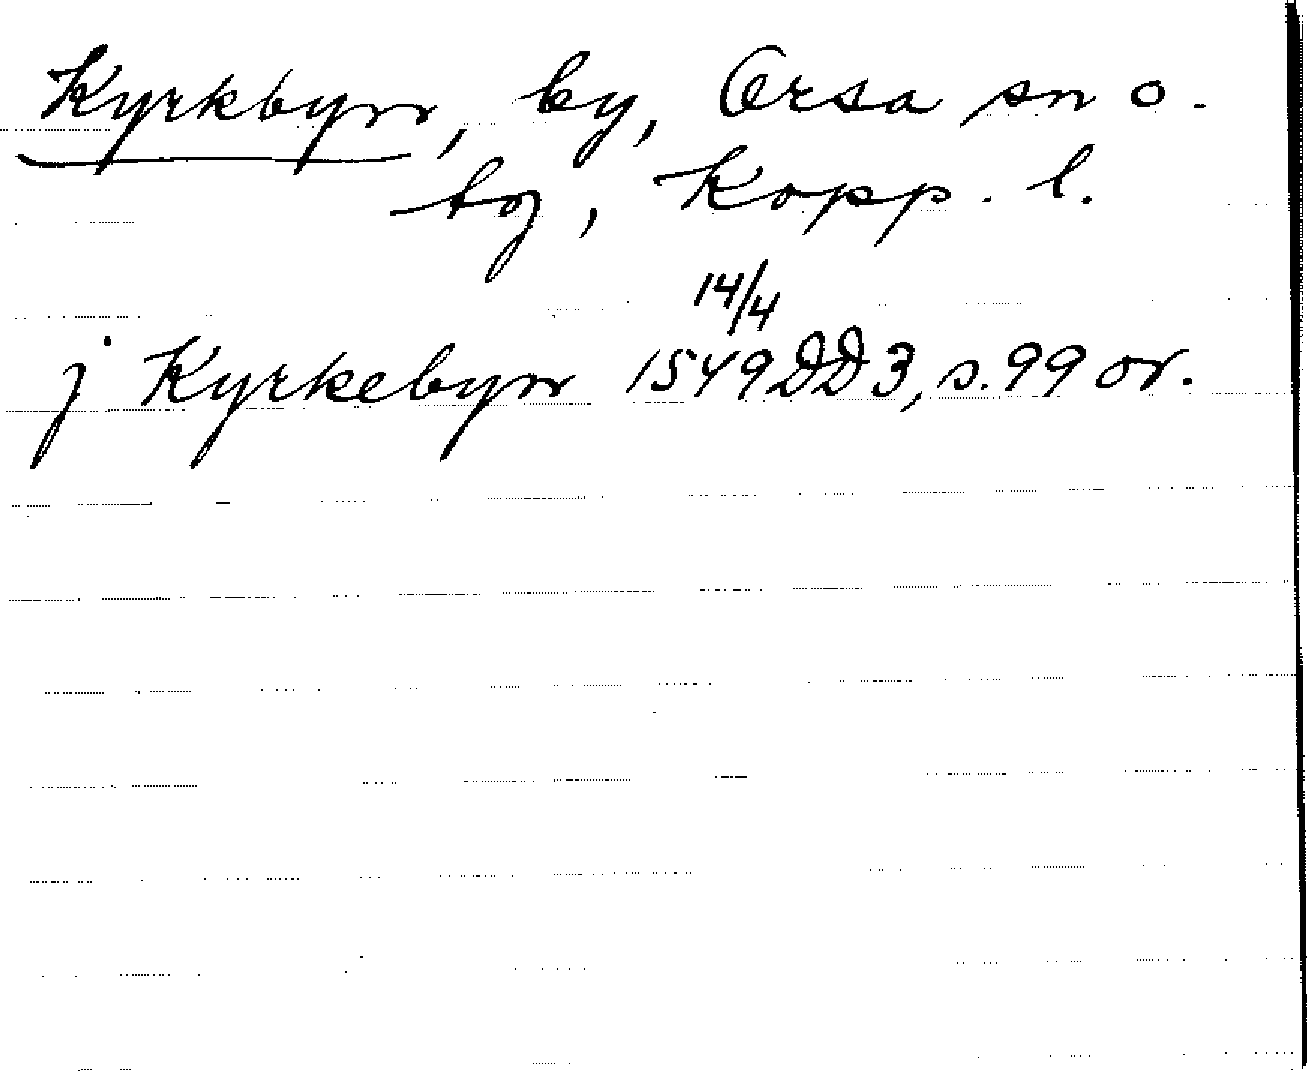 Kyrkbyn, by, Orsa sn o.
tg, Kopp. l.
14/4
j Kyrkebyn 1549 DD 3, s. 99 or.